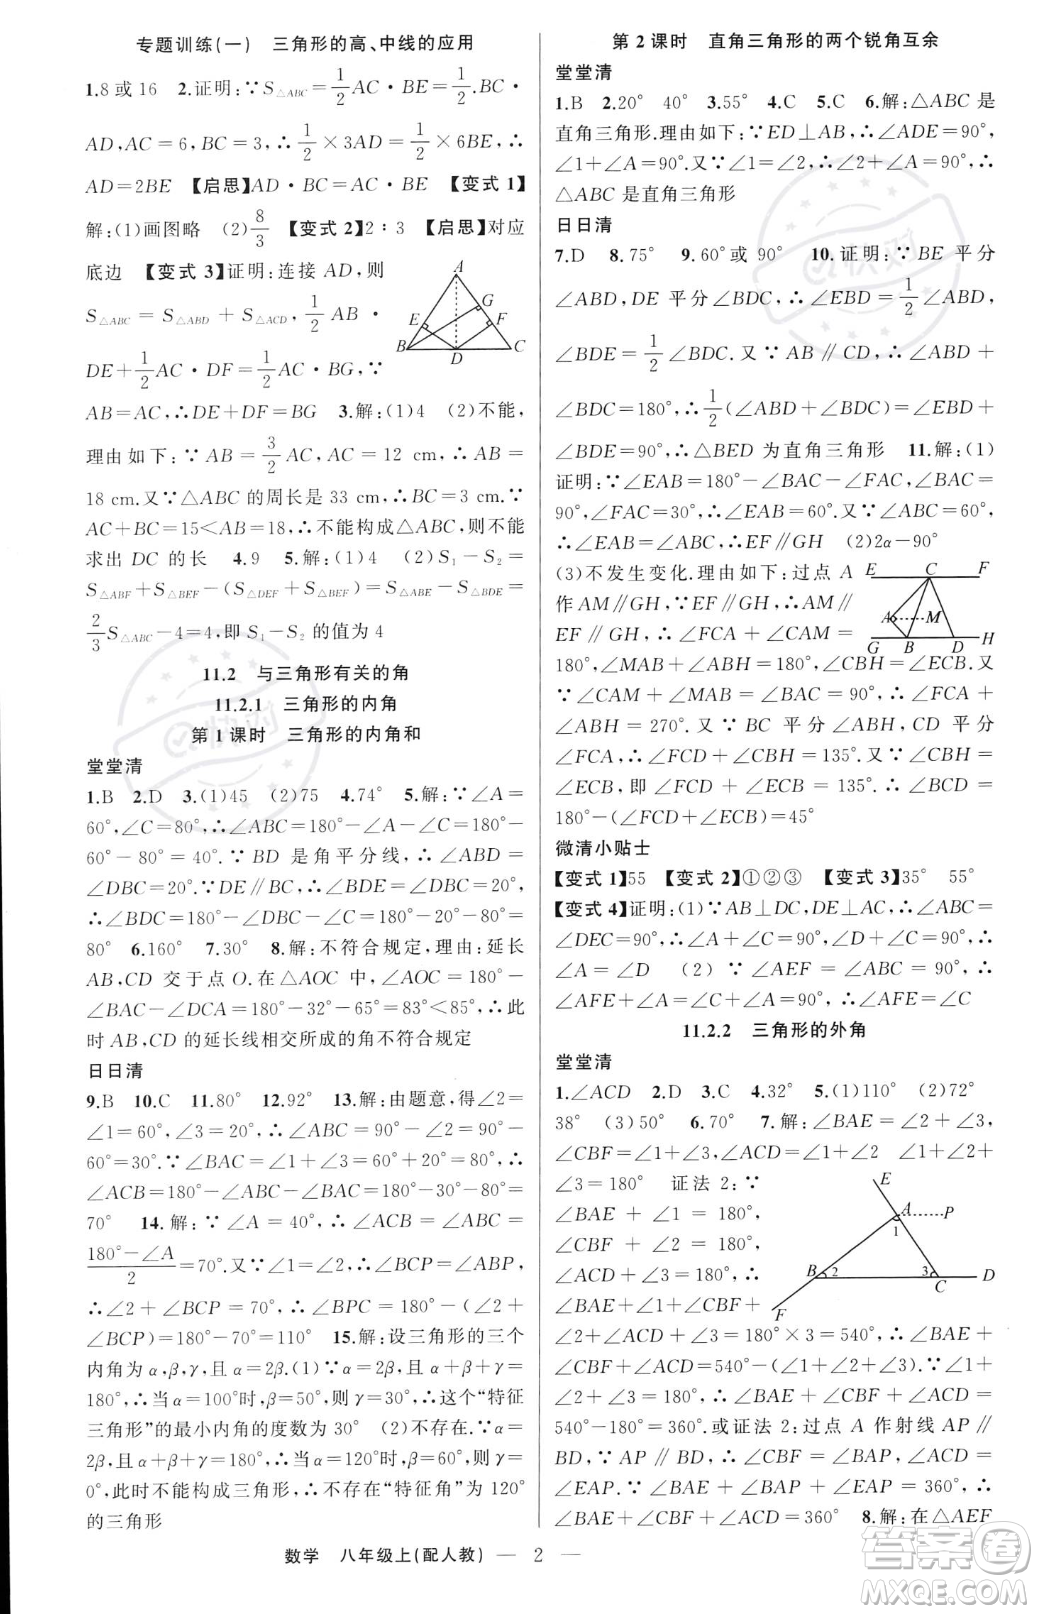 专题训练(一)　三角形的高、中线的应用
1.8 或 16　2.证明:∵S△ABC=1/2AC·BE=1/2BC·
AD,AC=6,BC=3,∴1/2×3AD=1/2×6BE,∴
AD=2BE　【启思】AD·BC=AC·BE　【变式 1】
解:(1)画图略　(2)8/3　【变式 2】2∶3　【启思】对应
底边　【变式 3】证明:连接 AD,则
S△ABC=S△ABD+S△ACD,∴1/2AB·
DE+1/2AC·DF=1/2AC·BG,∵
AB=AC,∴DE+DF=BG　3.解:(1)4　(2)不能,
理由如下:∵AB=3/2AC,AC=12 cm,∴AB=
18 cm.又∵△ABC 的周长是 33 cm,∴BC=3.∵
AC+BC=15<AB=18,∴不能构成△ABC,则不能
求出 DC 的长　4.9　5.解:(1)4　(2)S₁-S₂=
S△ABF+S△BEF-(S△DEF+S△BEF)=S△ABE-S△BDE=
2/3S△ABC-4=4,即 S₁-S₂ 的值为 4
A
G
E
F
B
D
C
11.2　与三角形有关的角
11.2.1　三角形的内角
第 1 课时　三角形的内角和
堂堂清
1.B　2.D　3.(1)45　(2)75　4.74°　5.解:∵∠A=
60°,∠C=80°,∴∠ABC=180°-∠A-∠C=180°-
60°-80°=40°.∵BD 是角平分线,∴∠ABD=
∠DBC=20°.∵DE∥BC,∴∠BDE=∠DBC=20°,
∴∠BDC=180°-∠DBC-∠C=180°-20°-80°=
80°　6.160°　7.30°　8.解:不符合规定,理由:延长
AB,CD 交于点 O.在△AOC 中,∠AOC=180°-
∠BAC-∠DCA=180°-32°-65°=83°<85°,∴此
时 AB,CD 的延长线相交所成的角不符合规定
日日清
9.B　10.C　11.80°　12.92°　13.解:由题意,得∠2=
∠1=60°,∠3=20°,∴∠ABC=90°-∠2=90°-
60°=30°.∵∠BAC=∠1+∠3=60°+20°=80°,∴
∠ACB=180°-∠ABC-∠BAC=180°-30°-80°=
70°　14.解:∵∠A=40°,∴∠ACB=∠ABC=
(180°-∠A)/2=70°.又∵∠1=∠2,∠BCP=∠ACB-∠1,
∴∠2+∠BCP=70°,∴∠BPC=180°-(∠2+
∠BCP)=180°-70°=110°　15.解:设三角形的三个
内角为 α,β,γ,且 α=2β.(1)∵α=2β,且 α+β+γ=
180°,∴当 α=100°时,β=50°,则 γ=30°,∴这个“特征
三角形”的最小内角的度数为 30°　(2)不存在.∵α=
2β,且 α+β+γ=180°,∴当 α=120°时,β=60°,则 γ=
0°,此时不能构成三角形,∴不存在“特征角”为 120°
的三角形
第 2 课时　直角三角形的两个锐角互余
堂堂清
1.B　2.20°　40°　3.55°　4.C　5.C　6.解:△ABC 是
直角三角形.理由如下:∵ED⊥AB,∴∠ADE=90°,
∠1+∠A=90°.又∵∠1=∠2,∴∠2+∠A=90°,∴
△ABC 是直角三角形
日日清
7.D　8.75°　9.60°或 90°　10.证明:∵BE 平分
∠ABD,DE 平分∠BDC,∴∠EBD=1/2∠ABD,
∠BDE=1/2∠BDC.又∵AB∥CD,∴∠ABD+
∠BDC=180°,∴1/2(∠ABD+∠BDC)=∠EBD+
∠BDE=90°,∴△BED 为直角三角形　11.解:(1)
证明:∵∠EAB=180°-∠BAC-∠FAC,∠BAC=
90°,∠FAC=30°,∴∠EAB=60°.又∵∠ABC=60°,
∴∠EAB=∠ABC,∴EF∥GH　(2)2α-90°
(3)不发生变化.理由如下:过点 A
作 AM∥GH,∵EF∥GH,∴AM∥
EF∥GH,∴∠FCA+∠CAM=
180°,∠MAB+∠ABH=180°,∠CBH=∠ECB.又
∵∠CAM+∠MAB=∠BAC=90°,∴∠FCA+
∠ABH=270°.又∵BC 平分∠ABH,CD 平分
∠FCA,∴∠FCD+∠CBH=135°,∴∠FCD+
∠ECB=135°,即∠FCD+∠ECB=∠BCD+
180°-(∠FCD+∠ECB)=45°
E
C
F
A
M
G
B
D
H
微清小贴士
【变式 1】55　【变式 2】①②③　【变式 3】35°　55°
【变式 4】证明:(1)∵AB⊥DC,DE⊥AC,∴∠ABC=
∠DEC=90°,∴∠A+∠C=90°,∠D+∠C=90°,∴
∠A=∠D　(2)∵∠AEF=∠ABC=90°,∴
∠AFE+∠A=∠C+∠A=90°,∴∠AFE=∠C
11.2.2　三角形的外角
堂堂清
1.∠ACD　2.D　3.C　4.32°　5.(1)110°　(2)72°
38°　(3)50°　6.70°　7.解:∵∠BAE=∠2+∠3,
∠CBF=∠1+∠3,∠ACD=∠1+∠2,∠1+∠2
+∠3=180°　证法 2:∵
∠BAE+∠1=180°,
∠CBF+∠2=180°,
∠ACD+∠3=180°,∴
∠BAE+∠1+∠CBF+
∠2+∠ACD+∠3=180°×3=540°,∴∠BAE+
∠CBF+∠ACD=540°-(∠1+∠2+∠3).∵∠1+
∠2+∠3=180°,∴∠BAE+∠CBF+∠ACD=
540°-180°=360°.或证法 2:过点 A 作射线 AP∥
BD,∵AP∥BD,∴∠CBF=∠BAP,∠ACD=
∠EAP.∵∠BAE+∠BAP+∠EAP=360°,∴
∠BAE+∠CBF+∠ACD=360°　8.解:在△AEF
E
A
P
1
B
2
3
C
D
F
数学　八年级上(配人教)　— 2 —
答案圈
MXQE.COM